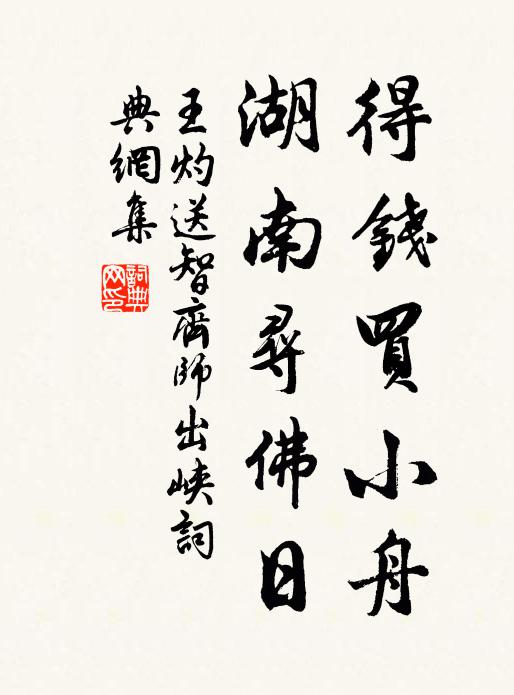 得錢買小舟
湖南尋佛日
王灼送智齊師出峽詞
典網集
詞典
网印